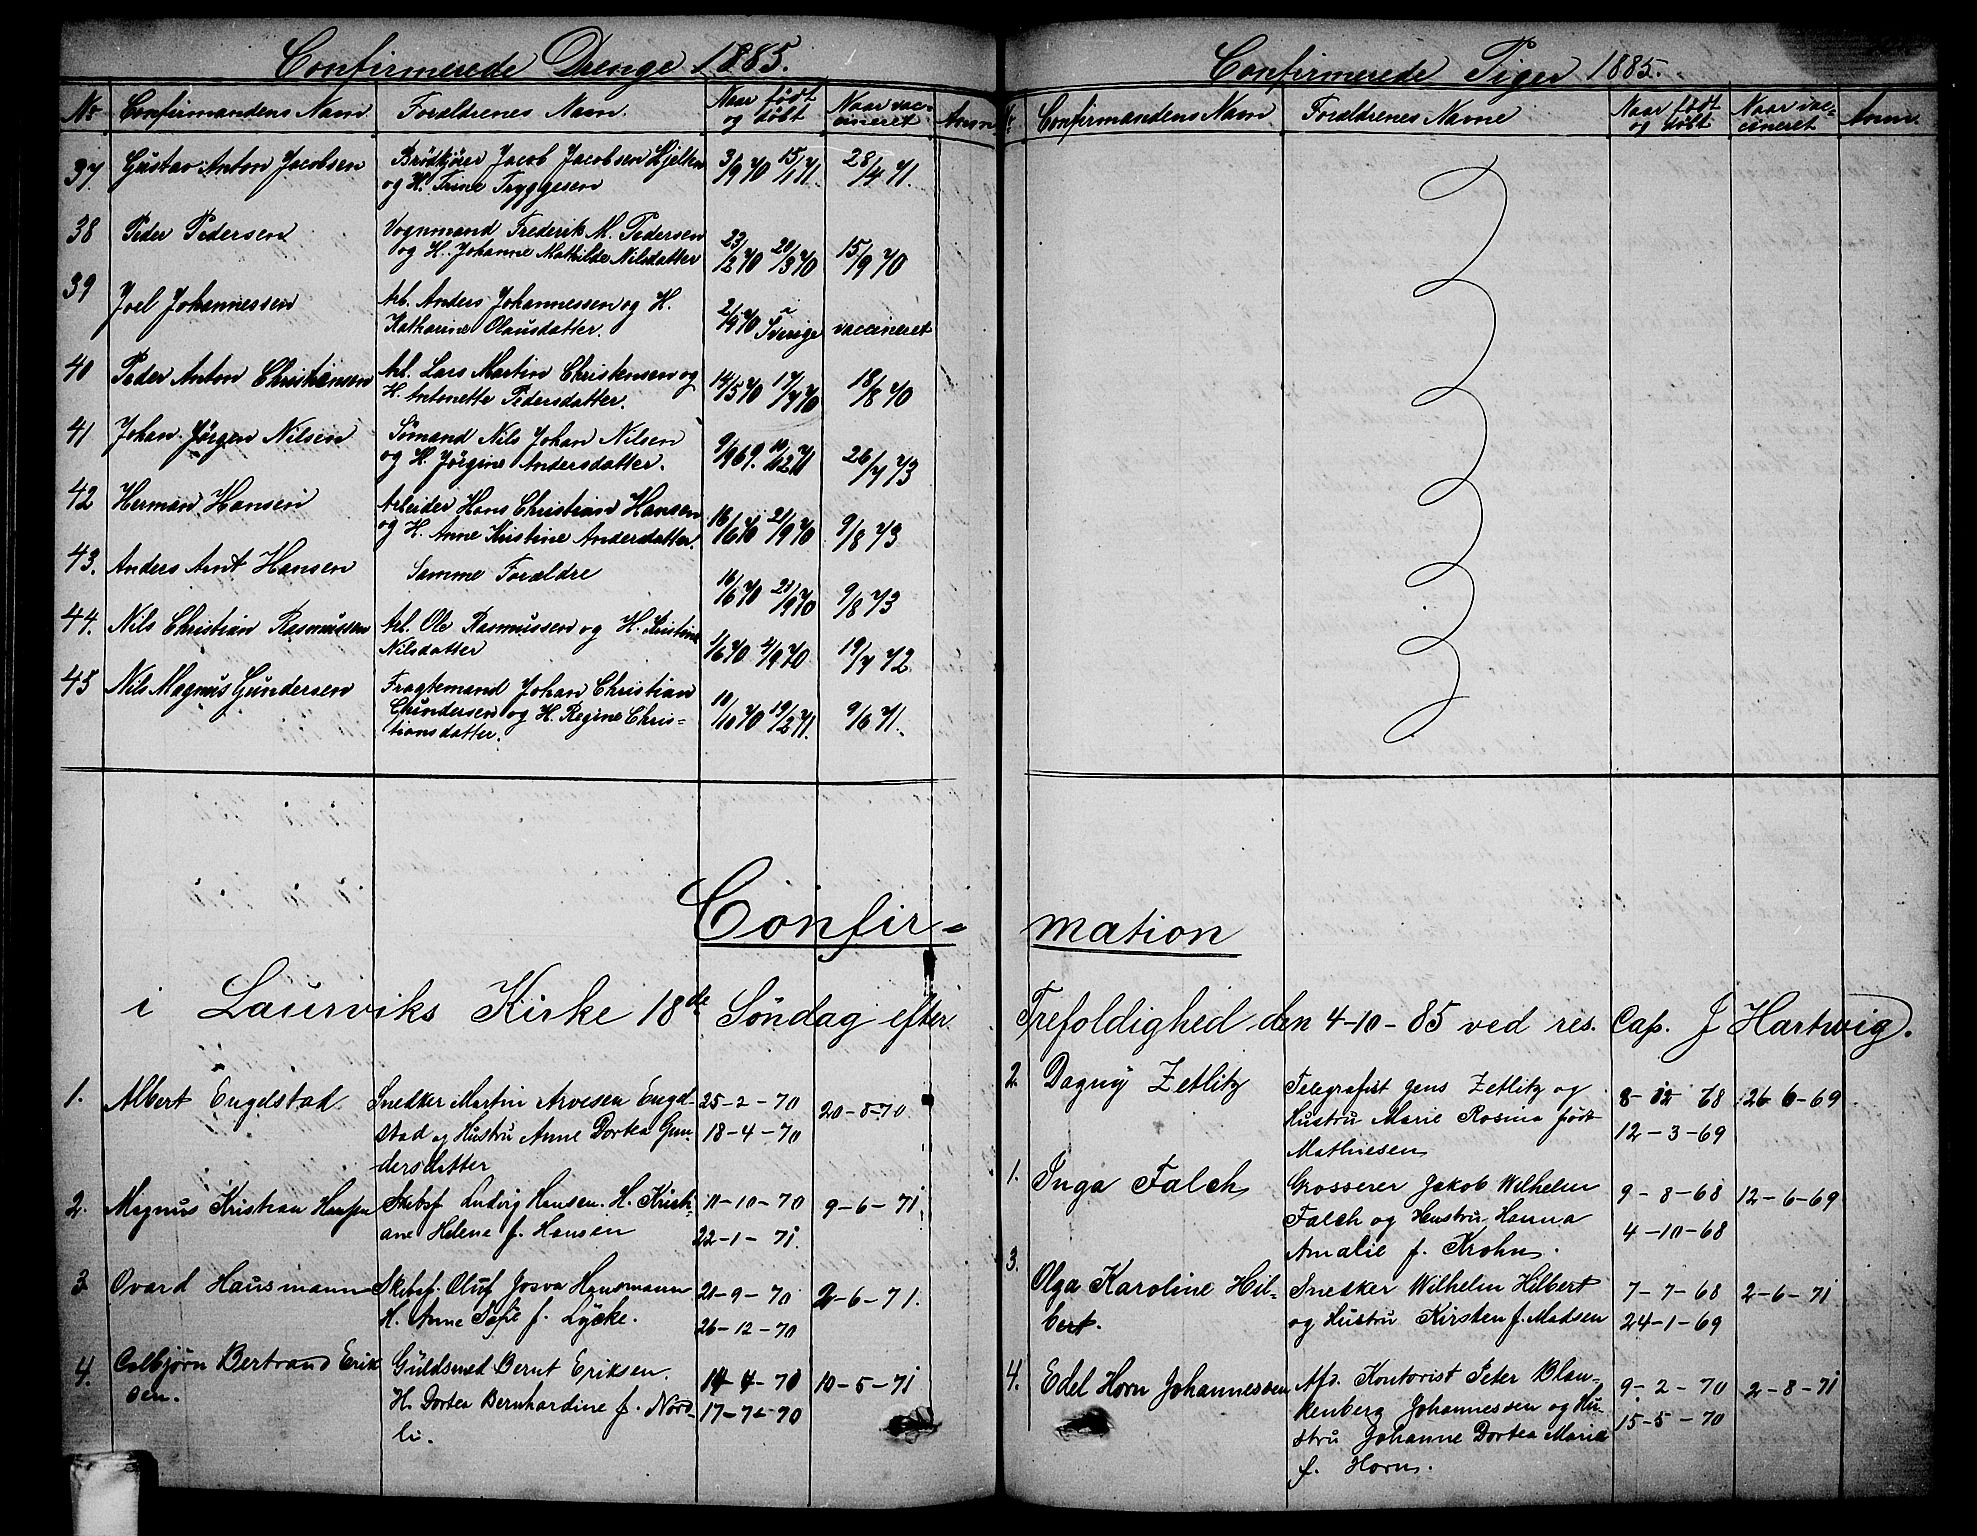 Confirmerede Drenge 1885.
No Confirmandens Navn Forældrenes Navn. Naar født og døbt Naar vaccineret Anm
37. Gustav Anton Jacobsen Brødkjører Jacob Jacobsen Hjelten 3/9 70 15/1 71. 28/4 71.
og H. Trine Tryggesen
38 Peder Pedersen Vognmand Frederik M. Pedersen
og H. Johanne Mathilde Nilsdatter 23/2 70 20/3 70 15/9 70
39 Joel Johannessen Arb. Anders Johannessen og H.
Katharine Olausdatter. 2/9 70 Sverige vaccineret
40 Peder Anton Christensen Arb. Lars Martin Christensen og 14/5 70 17/7 70 18/8 70
H. Antonette Pedersdatter.
41 Johan Jørgen Nilsen Sømand Nils Johan Nilsen
og H. Jørgine Andersdatter. 9/9 69. 10/12 71 26/7 73
42 Herman Hansen Arbeider Hans Christian Hansen
og H. Anne Kristine Andersdatter. 16/6 70 21/9 70 9/8 73
43. Anders Arnt Hansen Samme Forældre 16/6 70 21/9 70 9/8 73
44. Nils Christian Rasmussen Arb. Ole Rasmussen og H. Kristine
Nilsdatter 1/6 70 4/9 70 19/7 72
45 Nils Magnus Gundersen Fragtemand Johan Christian
Gundersen og H. Regine Chris= 10/10 70 19/2 71. 9/6 71.
tiansdatter.
Confir=
i Laurviks Kirke 18de Søndag efter
1. Albert Engelstad Snedker Martin Arvesen Engel= 25-2-70 20-8-70
stad og Hustru Anne Dortea Gun= 18-4-70
dersdatter
2. Magnus Kristian Hansen Skibsf Ludvig Hansen. H. Kristi= 11-10-70 9-6-71.
ane Helene f. Hansen 22-1-71.
3 Ovard Hausmann Skibsf. Oluf Josva Hausmann 20-9-70 2-6-71.
H. Anne Sofie f. Lycke. 26-12-70
4. Colbjørn Bertrand Erik Guldsmed Bernt Eriksen. 14-4-70 10-5-71
sen. H. Dortea Bernhardine f. Nord= 17-7-70
li.
Confirmerede Piger 1885.
Confirmandens Navn Forældrenes Navne Naar født og døbt Naar vaccineret Anm.
mation
Trefoldighed den 4-10-85 ved res. Cap. J Hartwig.
2. Dagny Zetlitz Telegrafist Jens Zetlitz og 8-12-68 26-6-69.
Hustru Marie Rosina født 12-3-69
Mathiesen
1. Inga Falch Grosserer Jakob Wilhelm 9-8-68 12-6-69
Falch og Hustru Hanna 4-10-68
Amalie f. Krohn.
3. Olga Karoline Hil= Snedker Wilhelm Hilbert 7-7-68 2-6-71
bert. og Hustru Kirsten f. Madsen 24-1-69
4. Edel Horn Johannessen Afs. Kontorist Peter Blan= 9-2-70 2-8-71
kenberg Johannessen og Hu= 15-5-70
stru Johanne Dortea Marie
f. Horn.